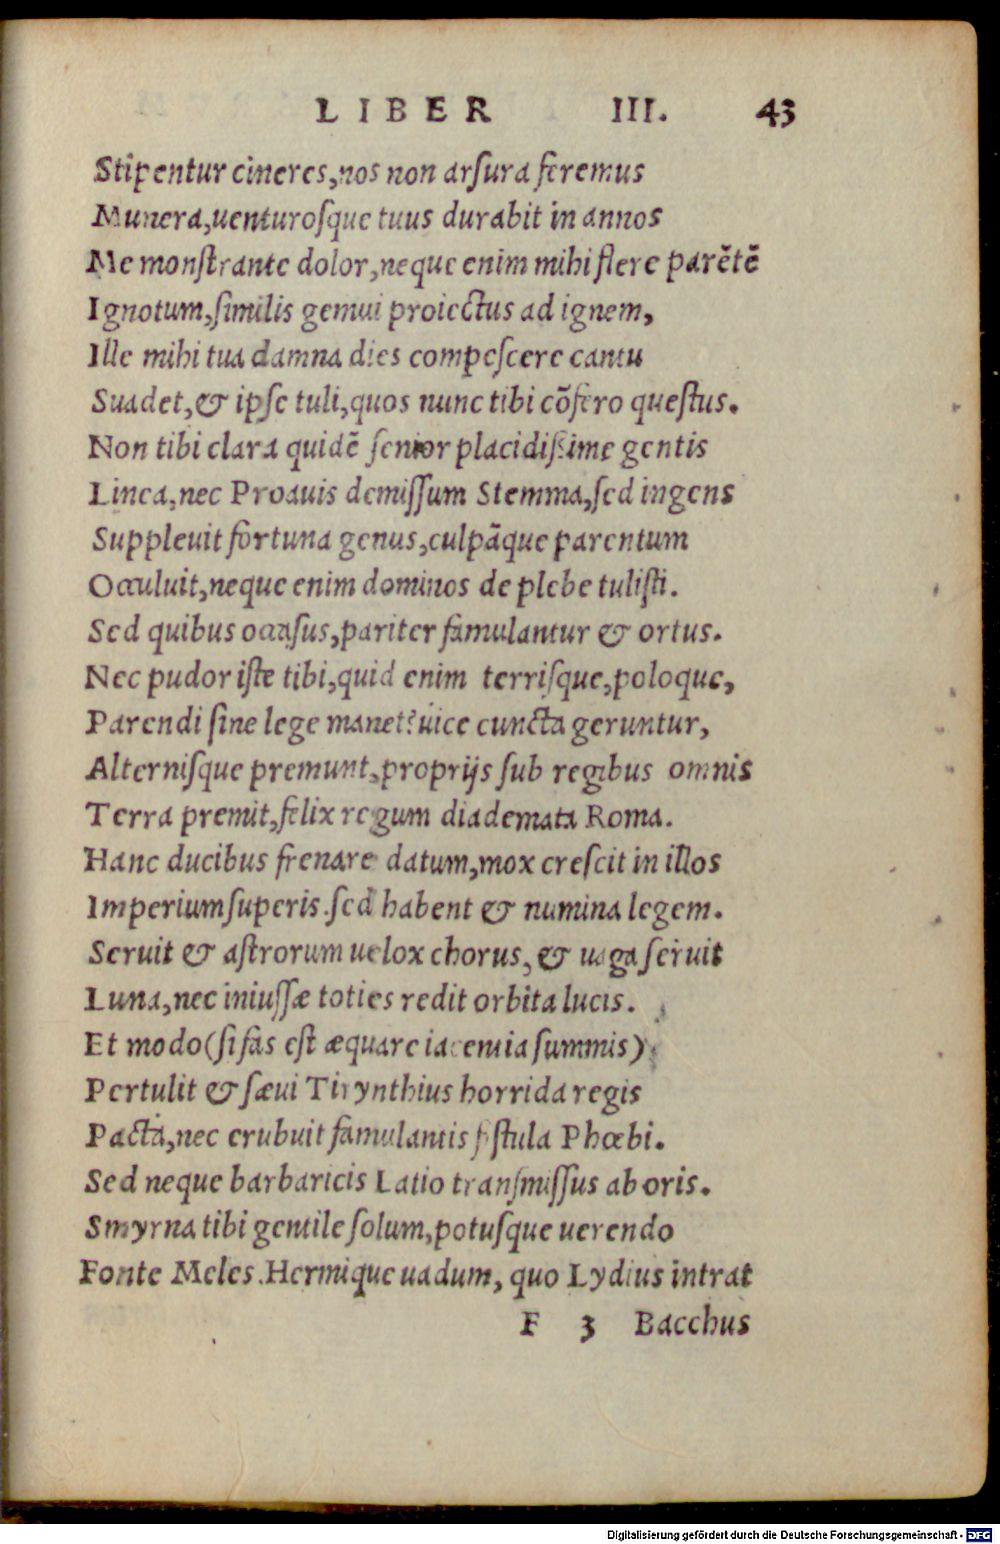 LIBER III. 43
Stipentur cineres,nos non arſura feremus
Munera,uenturoſque tuus durabit in annos
Me monſtrante dolor,neque enim mihi flere parẽtẽ
Ignotum,ſimilis gemui proiectus ad ignem,
Ille mihi tua damna dies compeſcere cantu
Suadet,& ipſe tuli,quos nunc tibi cõfero queſtus.
Non tibi clara quidẽ ſenior placidiſsime gentis
Linea,nec Proauis demiſſum Stemma,ſed ingens
Suppleuit fortuna genus,culpãque parentum
Occuluit,neque enim dominos de plebe tuliſti.
Sed quibus occaſus,pariter famulantur & ortus.
Nec pudor iſte tibi,quid enim terriſque,poloque,
Parendi ſine lege manet?uice cuncta geruntur,
Alterniſque premunt,proprijs ſub regibus omnis
Terra premit,felix regum diademata Roma.
Hanc ducibus frenare datum,mox creſcit in illos
Imperium ſuperis.ſed habent & numina legem.
Seruit & aſtrorum uelox chorus,& uaga ſeruit
Luna,nec iniuſſæ toties redit orbita lucis.
Et modo(ſi fas eſt æquare iacentia ſummis)
Pertulit & ſæui Tirynthius horrida regis
Pacta,nec erubuit famulantis fiſtula Phœbi.
Sed neque barbaricis Latio tranſmiſſus ab oris.
Smyrna tibi gentile ſolum,potuſque uerendo
Fonte Meles.Hermique uadum, quo Lydius intrat
F 3 Bacchus
Digitalisierung gefördert durch die Deutsche Forschungsgemeinschaft - DFG